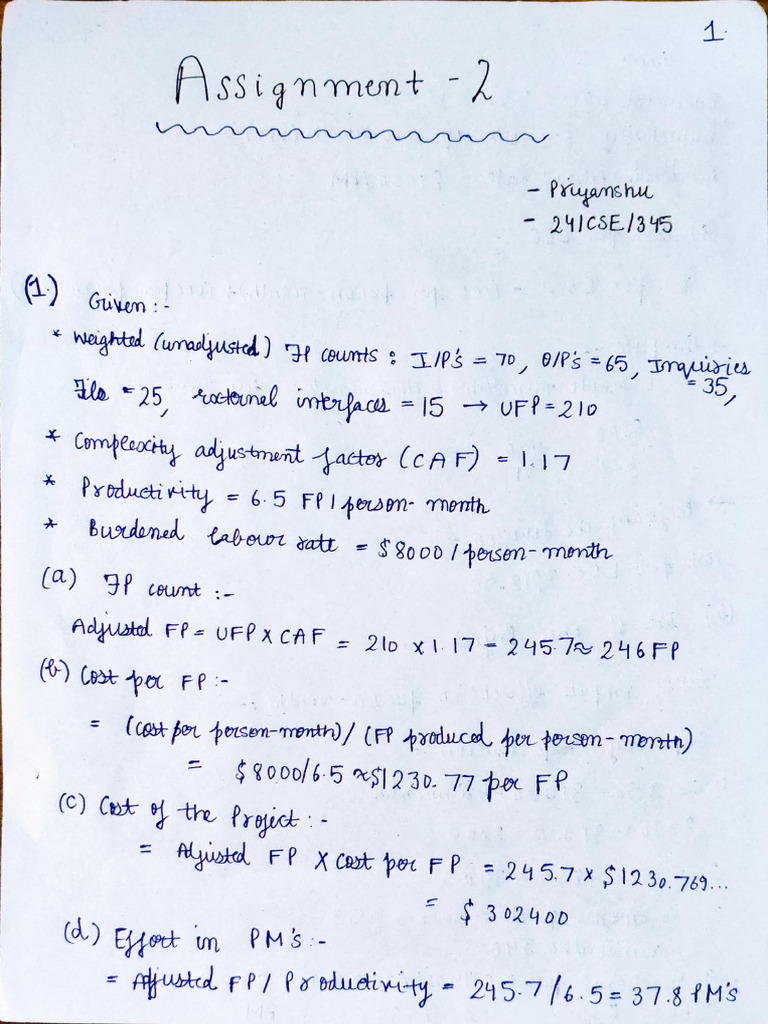 1.
Assignment - 2
- Priyanshu
- 24/CSE/345
(1.) Given :-
* Weighted (unadjusted) FP counts : I/P's = 70, O/P's = 65, Inquiries = 35,
File = 25, external interfaces = 15 → UFP = 210
* Complexity adjustment factor (CAF) = 1.17
* Productivity = 6.5 FP/person-month
* Burdened labour rate = $8000/person-month
(a) FP count :-
Adjusted FP = UFP X CAF = 210 x 1.17 = 245.7 ≈ 246 FP
(b) Cost per FP :-
= (cost per person-month)/(FP produced per person-month)
= $8000/6.5 ≈ $1230.77 per FP
(c) Cost of the Project :-
= Adjusted FP X cost per FP = 245.7 x $1230.769...
= $302400
(d) Effort in PM's :-
= Adjusted FP/Productivity = 245.7/6.5 = 37.8 PM's